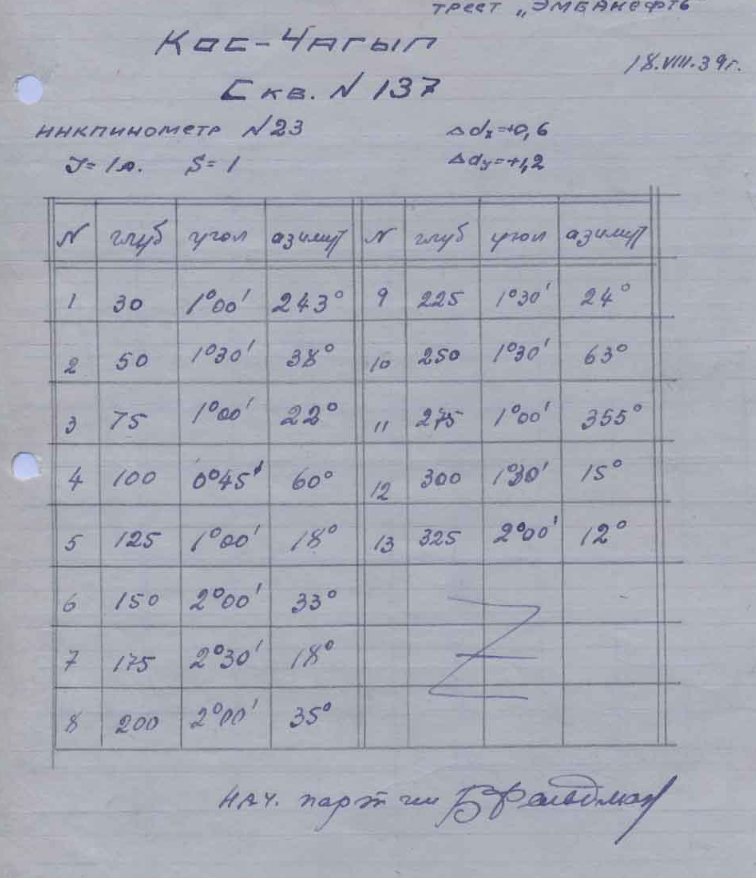 трест „Эмбанефть"
Кос-Чагыл
18.VIII.39г.
Скв. N 137
инклинометр N23
Δdx=+0,6
J=1а. S=1
Δdy=+1,2
N глуб угол азимут N глуб угол азимут
1 30 1°00' 243° 9 225 1°30' 24°
2 50 1°30' 38° 10 250 1°30' 63°
3 75 1°00' 22° 11 275 1°00' 355°
4 100 0°45' 60° 12 300 1°30' 15°
5 125 1°00' 18° 13 325 2°00' 12°
6 150 2°00' 33°
7 175 2°30' 18°
8 200 2°00' 35°
нач. партии Б Фельдман